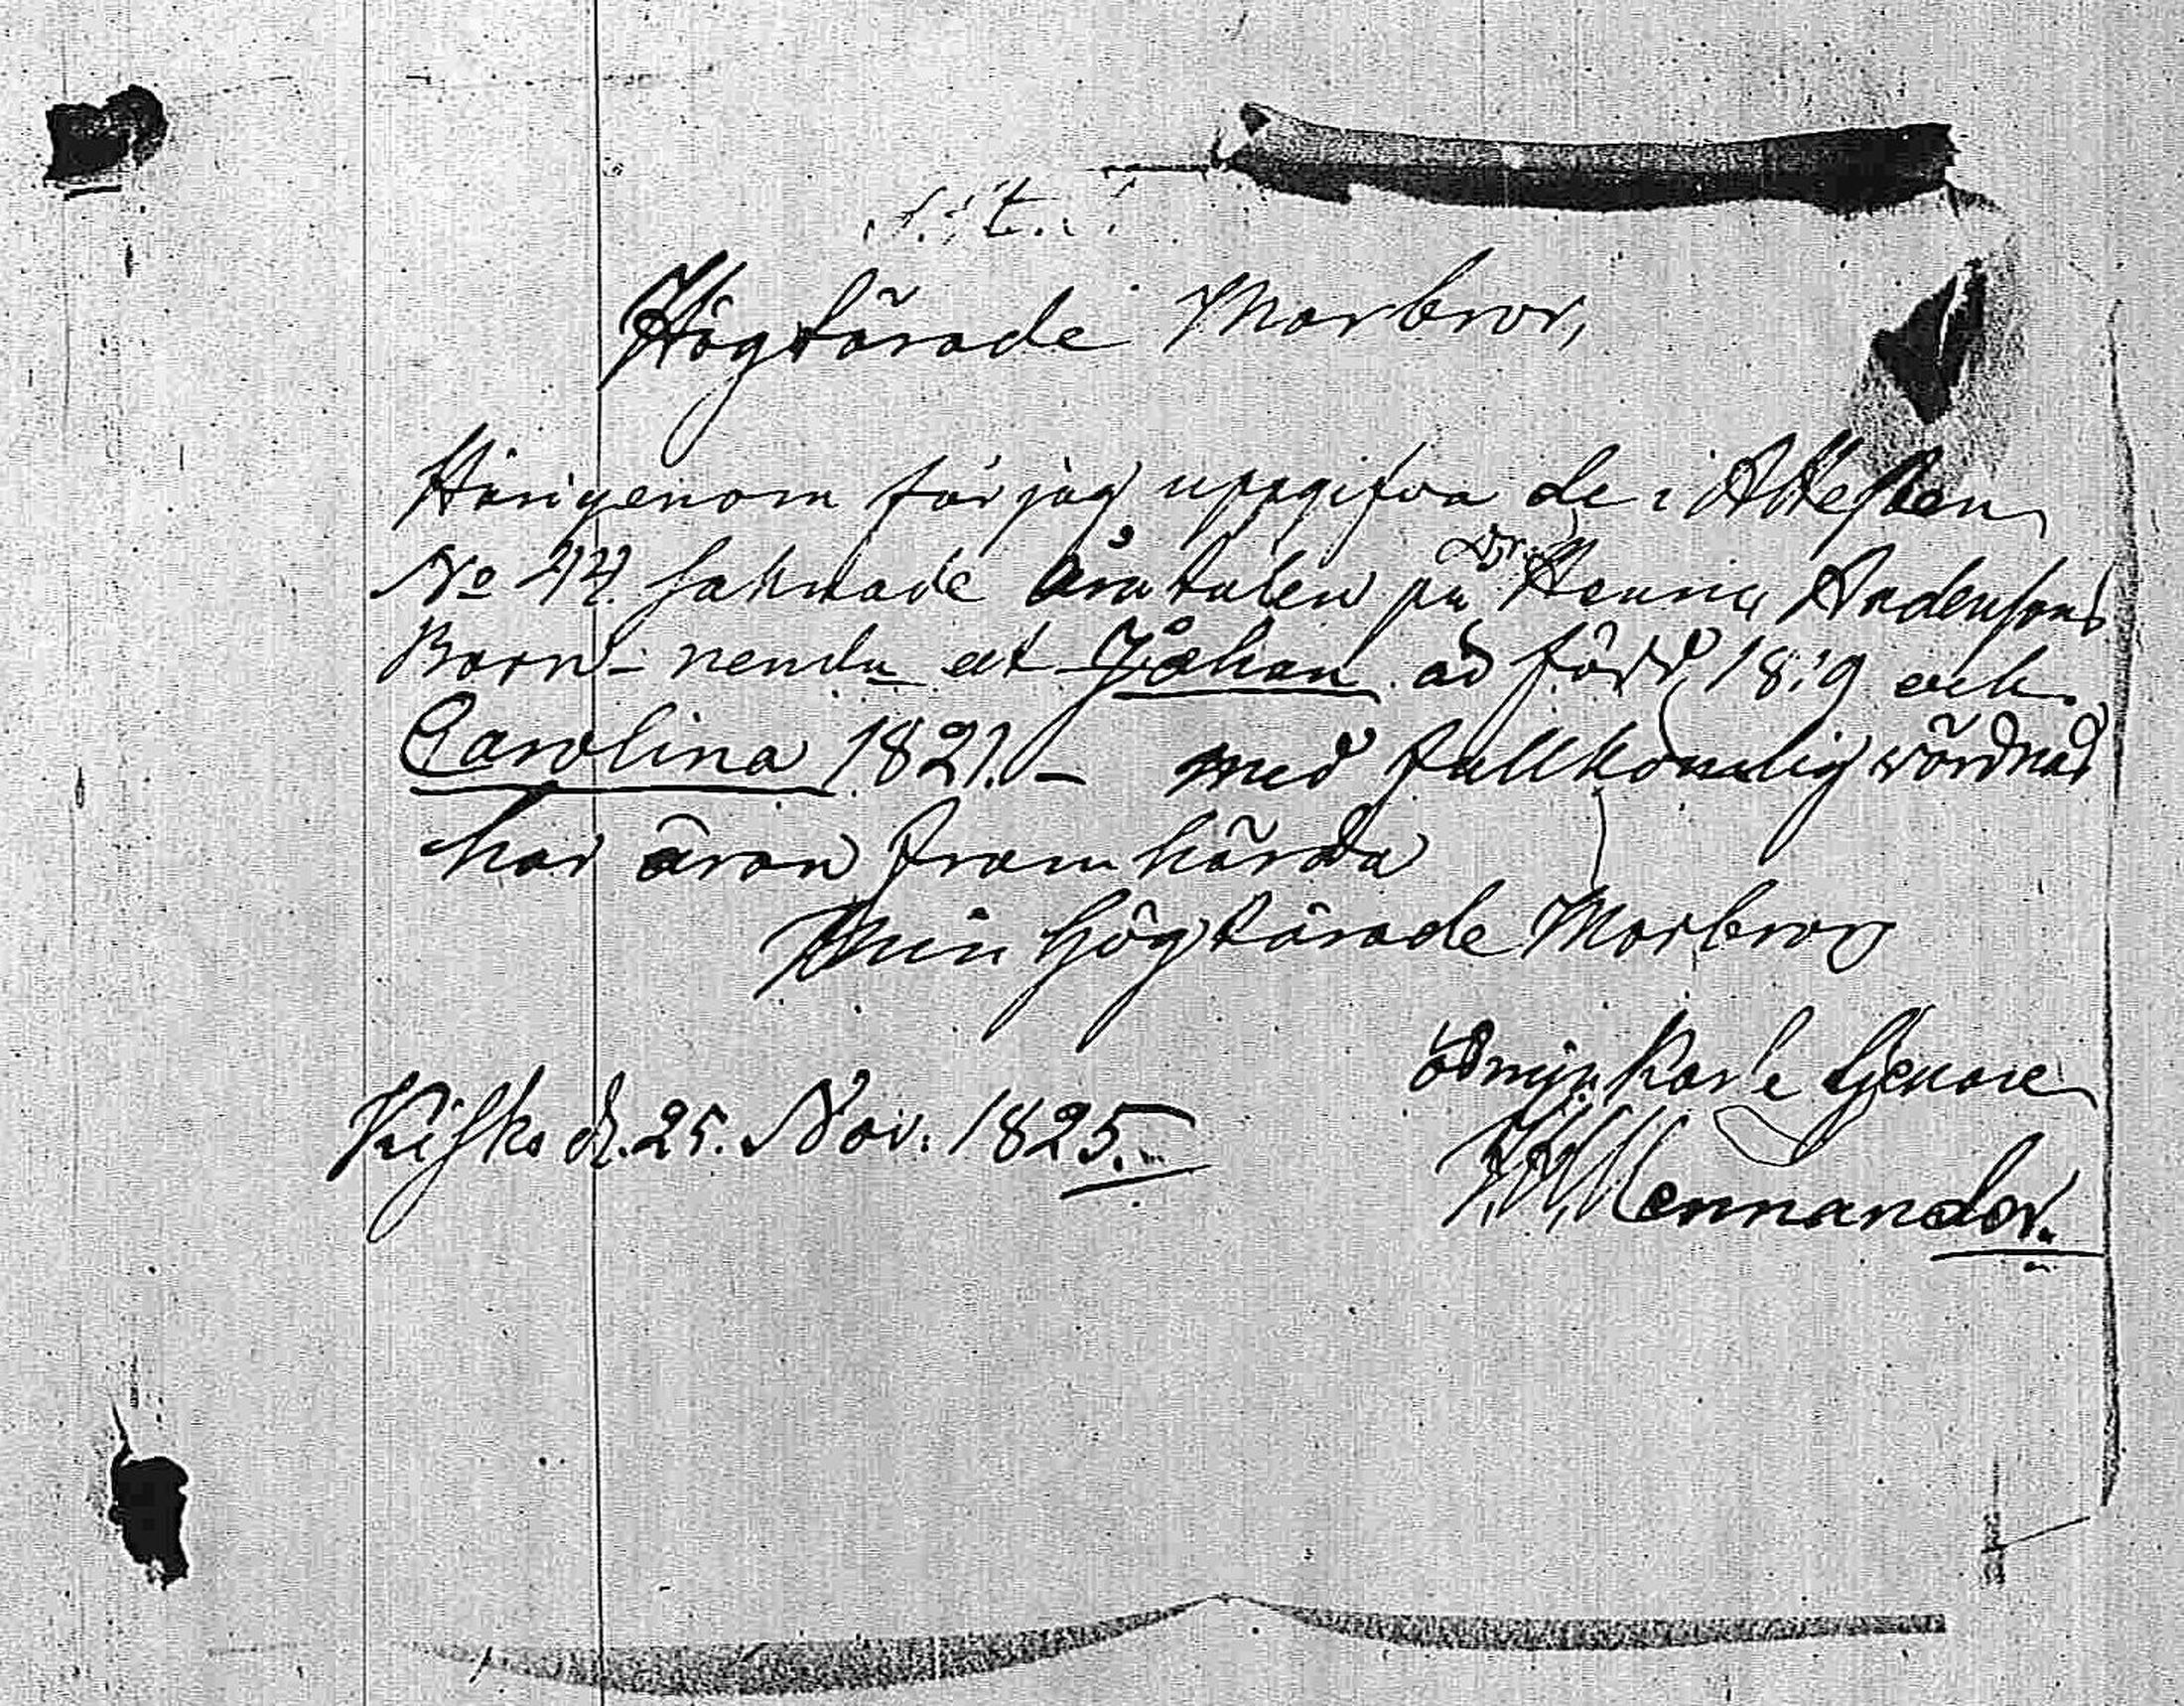 Högtärade Morbror,
Härigenom får jag uppgifva de i Attesten
No 44 saknade årtalen på Henric Andersons
Barn nemln at Johan är född 1819 och
Carolina 1821. – med fullkomlig vördnad
har äran framhärda
Min Högtärade Morbrors
ödmjukaste tjenare
Kisko d. 25. Nov. 1825.
Mennander.